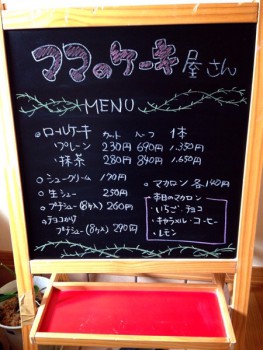 ココのケーキ屋さん
MENU
ロールケーキ カット ハーフ 1本
プレーン 230円 690円 1,350円
抹茶 280円 840円 1,650円
シュークリーム 170円
生シュー 250円
プチシュー(8ヶ入) 260円
チョコがけ
プチシュー(8ヶ入) 290円
マカロン 各140円
本日のマカロン
・いちご・チョコ
・キャラメル・コーヒー
・レモン